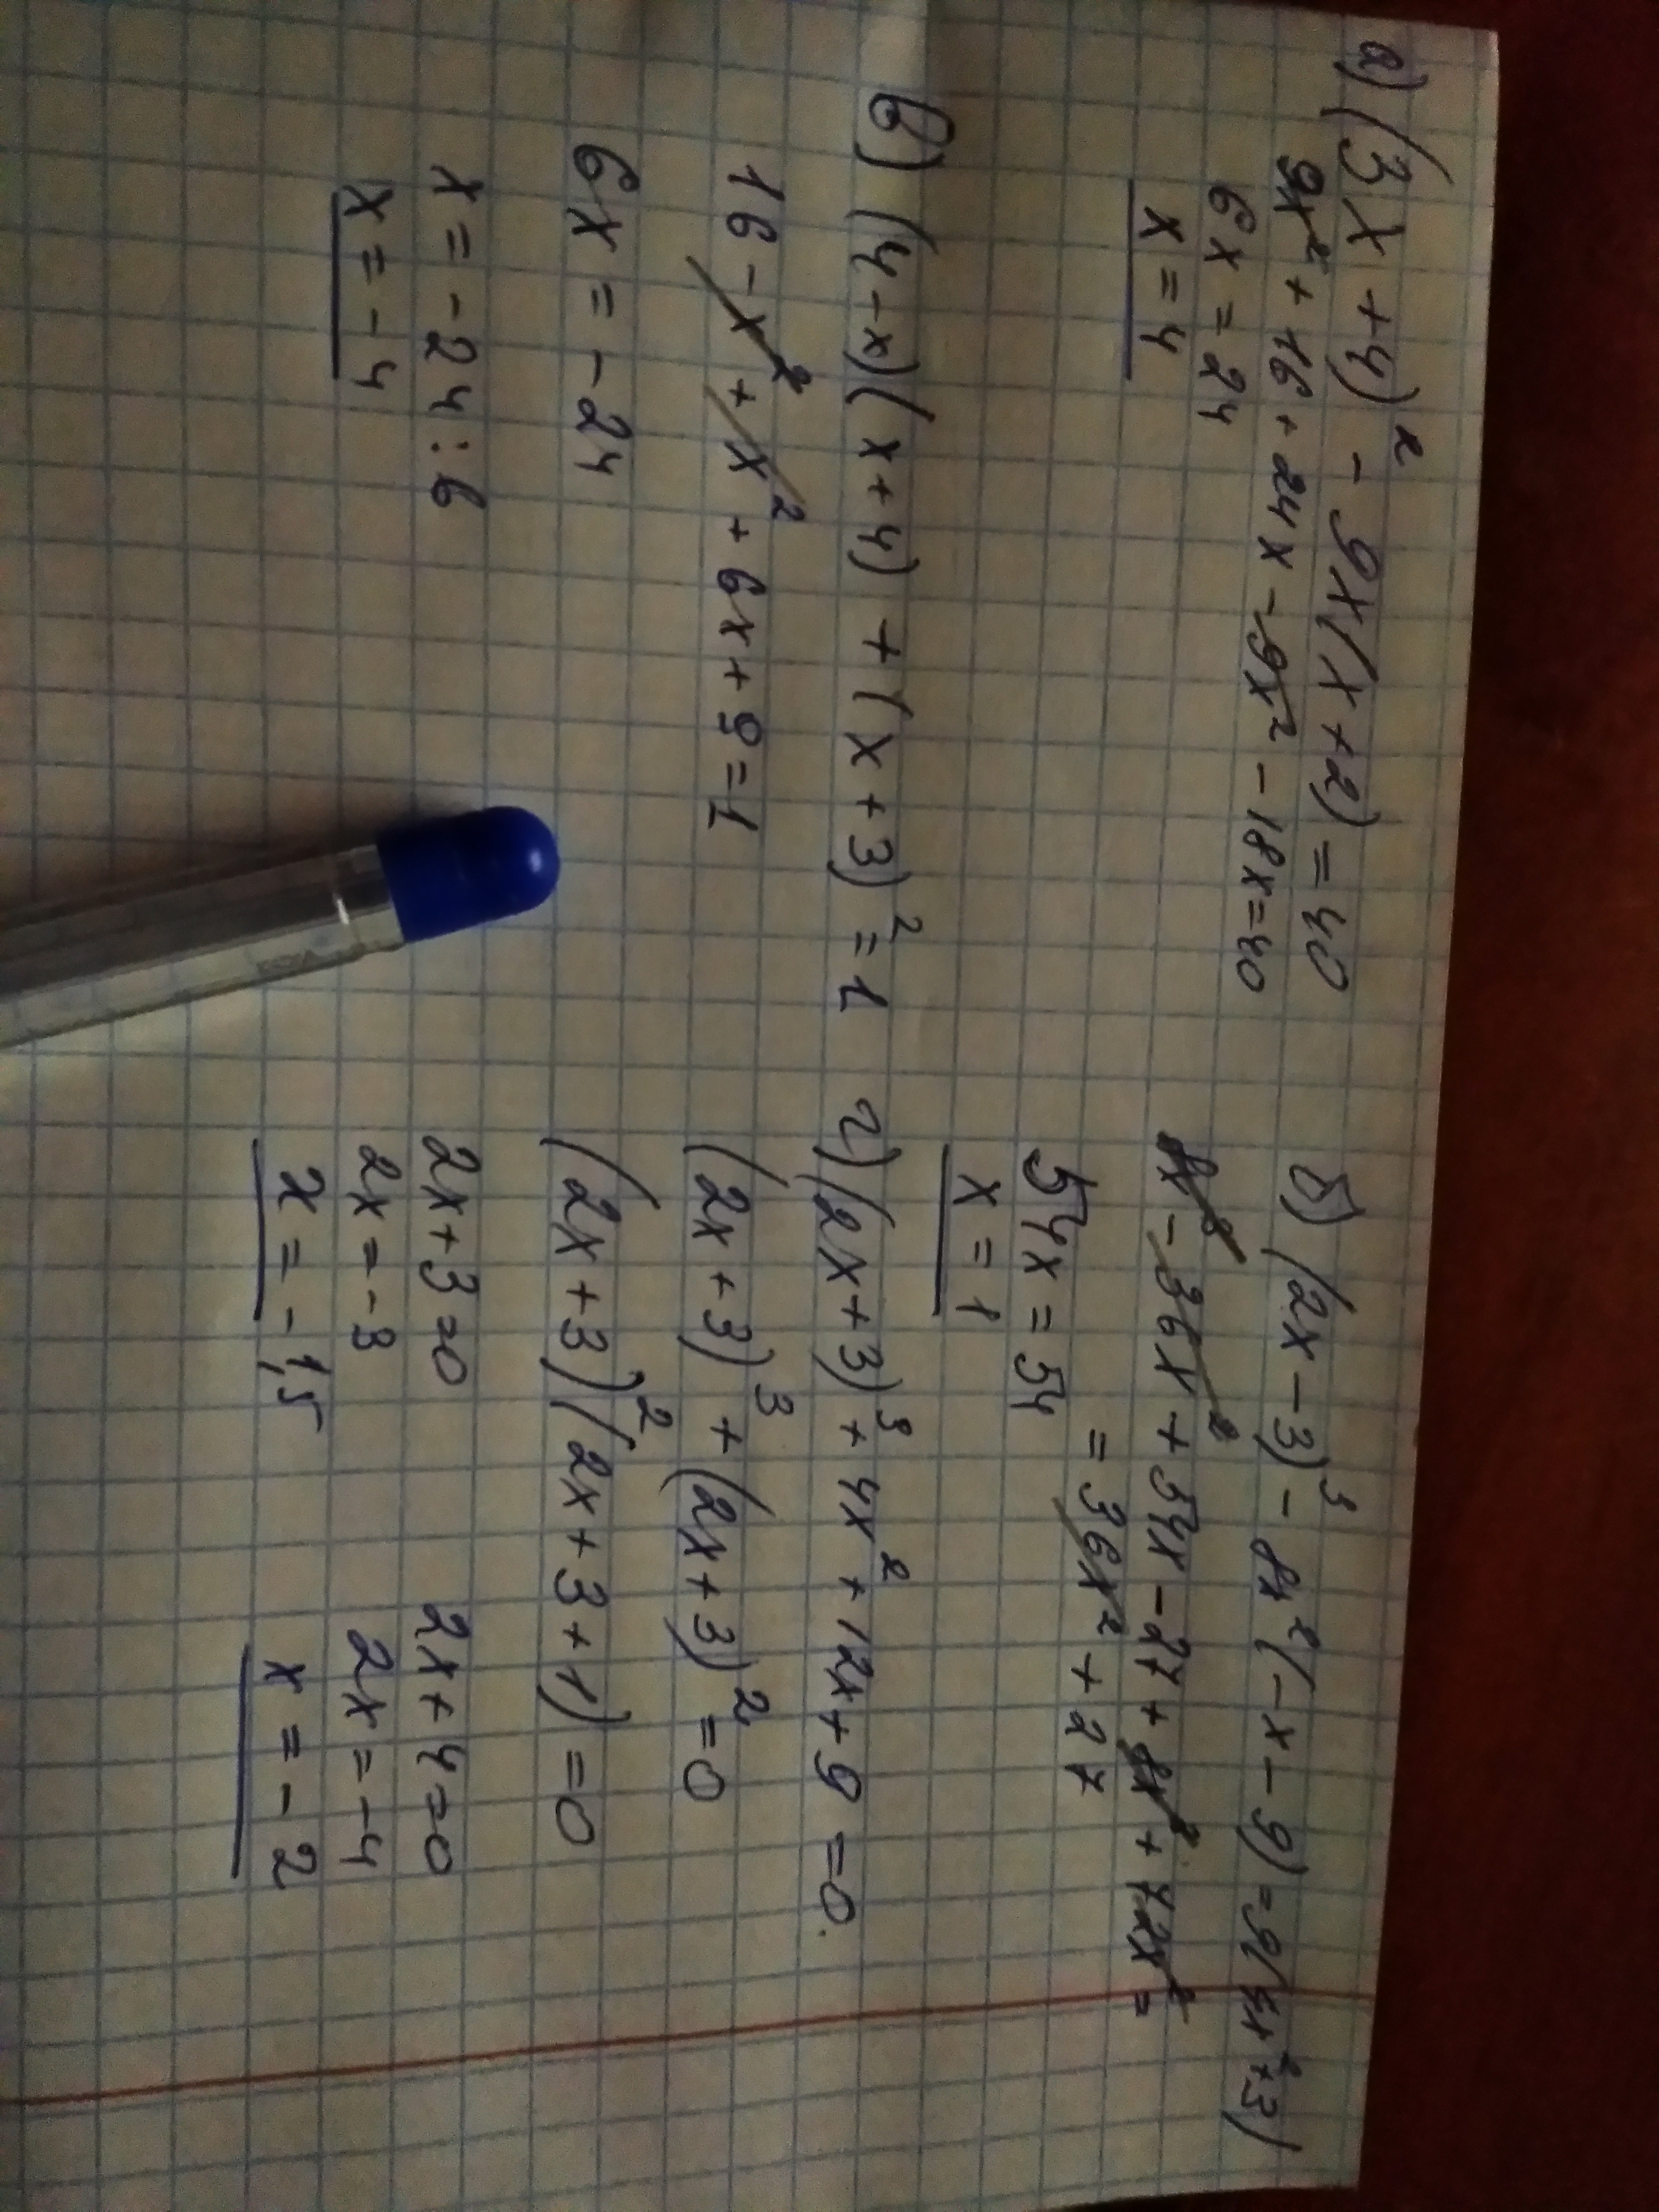 а) (3x+4)² - 9x(x+2) = 40
9x² + 16 + 24x - 9x² - 18x = 40
6x = 24
x = 4
б) (2x-3)³ - 8x²(-x-9) = 9(4x²+3)
8x³ - 36x² + 54x - 27 + 8x³ + 72x² =
= 36x² + 27
54x = 54
x = 1
в) (4-x)(x+4) + (x+3)² = 1
16 - x² + x² + 6x + 9 = 1
6x = -24
x = -24 : 6
x = -4
г) (2x+3)³ + 4x² + 12x + 9 = 0.
(2x+3)³ + (2x+3)² = 0
(2x+3)² (2x+3+1) = 0
2x+3=0 2x+4=0
2x = -3 2x = -4
x = -1,5 x = -2